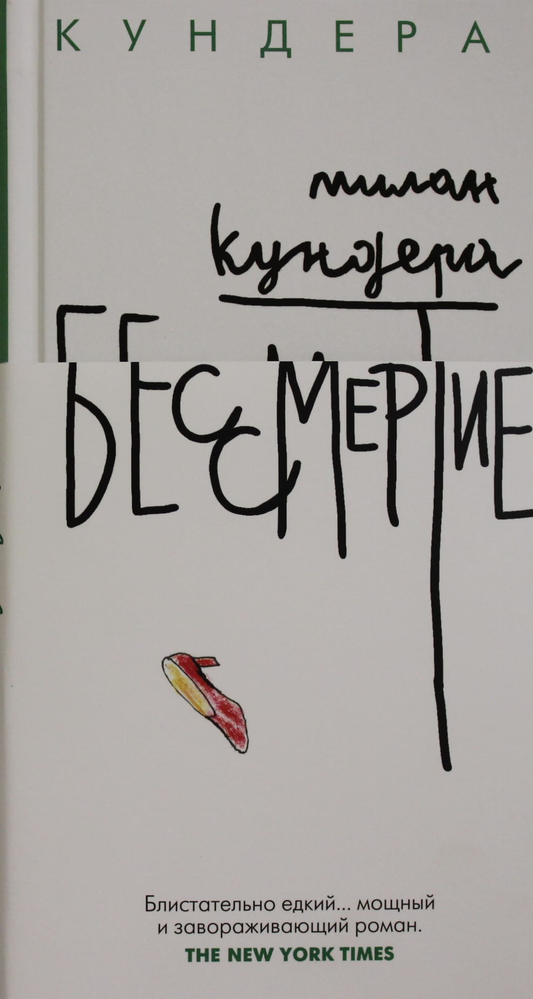 КУНДЕРА
милан
кундера
БЕССМЕРТИЕ
Блистательно едкий... мощный
и завораживающий роман.
THE NEW YORK TIMES